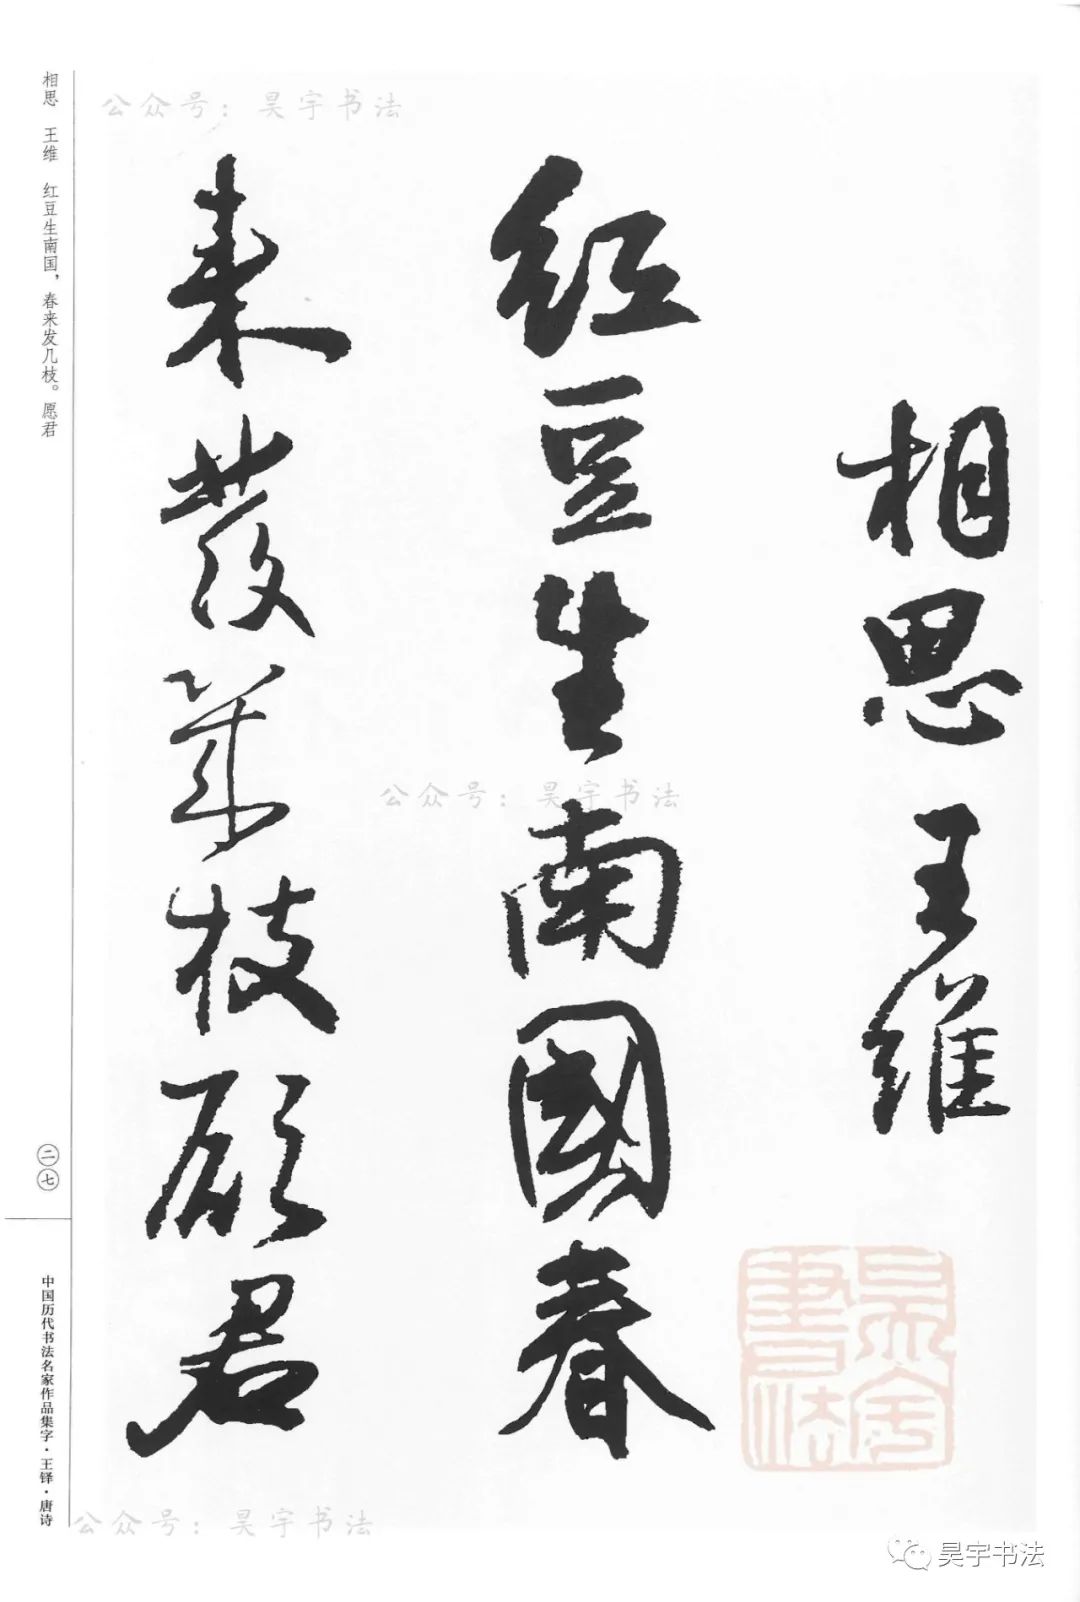 相思 王维
紅豆生南國春
来發幾枝願君
相思 王维 红豆生南国，春来发几枝。愿君
二七
中国历代书法名家作品集字·王铎·唐诗
公众号：昊宇书法
公众号：昊宇书法
公众号：昊宇书法
昊宇書法
昊宇书法